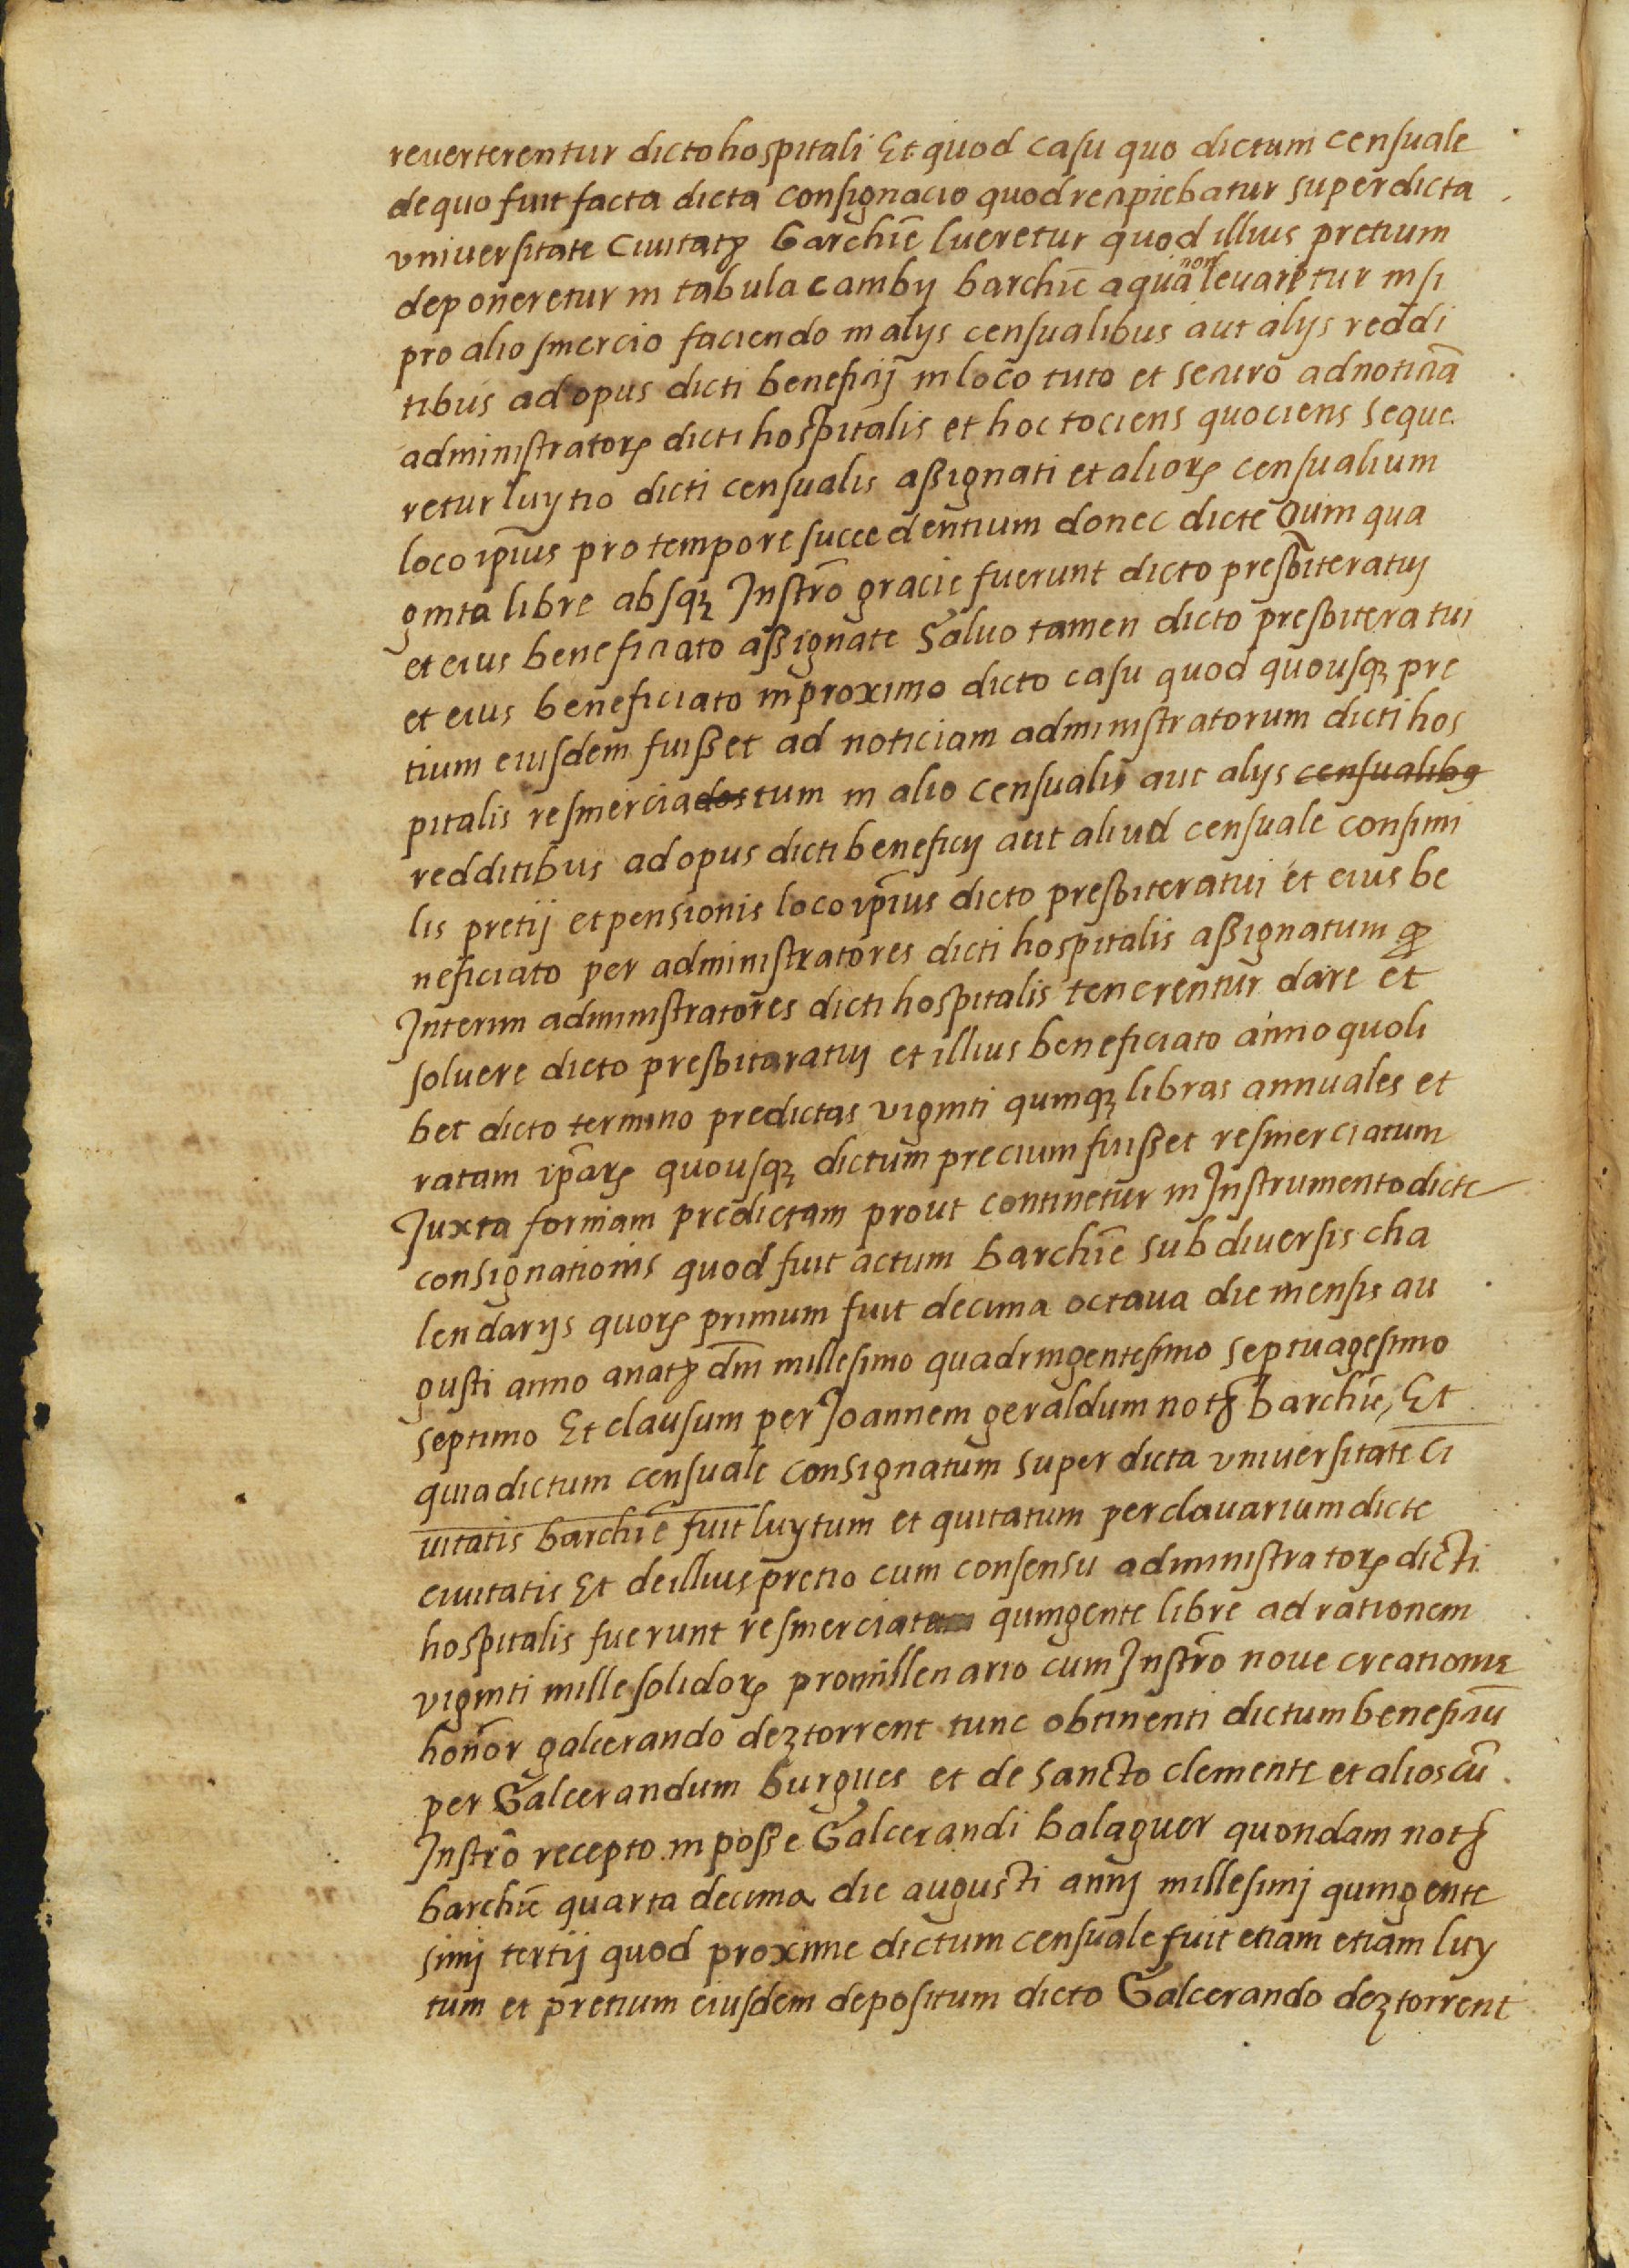 reuerterentur dicto hospitali Et quod casu quo dictum censuale
de quo fuit facta dicta consignacio quod recipiebatur super dicta
vniuersitate Ciuitatꝭ barchīe lueretur quod illius pretium
deponeretur in tabula cambij barchīe a qua non leuaretur nisi
pro alio smercio faciendo in alijs censualibus aut alijs reddi
tibus ad opus dicti beneficij in loco tuto et securo ad noticiā
administratorꝝ dicti hospitalis et hoc tociens quociens seque
retur luytio dicti censualis assignati et aliorꝝ censualium
loco ip̄ius pro tempore succedentium donec dicte Quinqua
ginta libre absqꝫ Instrō gracie fuerunt dicto presbiteratuj
et eius beneficiato assignate Saluo tamen dicto presbiteratui
et eius beneficiato in proximo dicto casu quod quousqꝫ pre
tium eiusdem fuisset ad noticiam administratorum dicti hos
pitalis resmerciadostum in alio censualis aut alijs censualibꝫ
redditibus ad opus dicti beneficij aut aliud censuale consimi
lis pretij et pensionis loco ip̄ius dicto presbiteratui et eius be
neficiato per administratores dicti hospitalis assignatum ꝙ
Interim administratores dicti hospitalis tenerentur dare et
soluere dicto presbitaratuj et illius beneficiato anno quoli
bet dicto termino predictas viginti quinqꝫ libras annuales et
ratam ip̄arꝝ quousqꝫ dictum precium fuisset resmerciatum
Juxta formam predictam prout continetur in Instrumento dicte
consignationis quod fuit actum barchīe sub diuersis cha
lendarijs quorꝝ primum fuit decima octaua die mensis au
gusti anno anatꝭ dn̄i millesimo quadringentesimo septuagesimo
septimo Et clausum per Joannem geraldum notꝭ barchīe, Et
quia dictum censuale consignatum super dicta vniuersitate ci
uitatis barchīe fuit luytum et quitatum per clauarium dicte
ciuitatis Et de illius pretio cum consensu administratorꝝ dicti
hospitalis fuerunt resmerciata quingente libre ad rationem
viginti mille solidorꝝ pro millenario cum Instrō noue creationis
honōr galcerando deztorrent tunc obtinenti dictum beneficiū
per Galcerandum burgues et de sancto clemente et alios cū
Instrō recepto in posse Galcerandi balaguer quondam notꝭ
barchīe quarta decima die augusti annj millesimj quingente
simj tertij quod proxime dictum censuale fuit etiam etiam luy
tum et pretium eiusdem depositum dicto Galcerando deztorrent